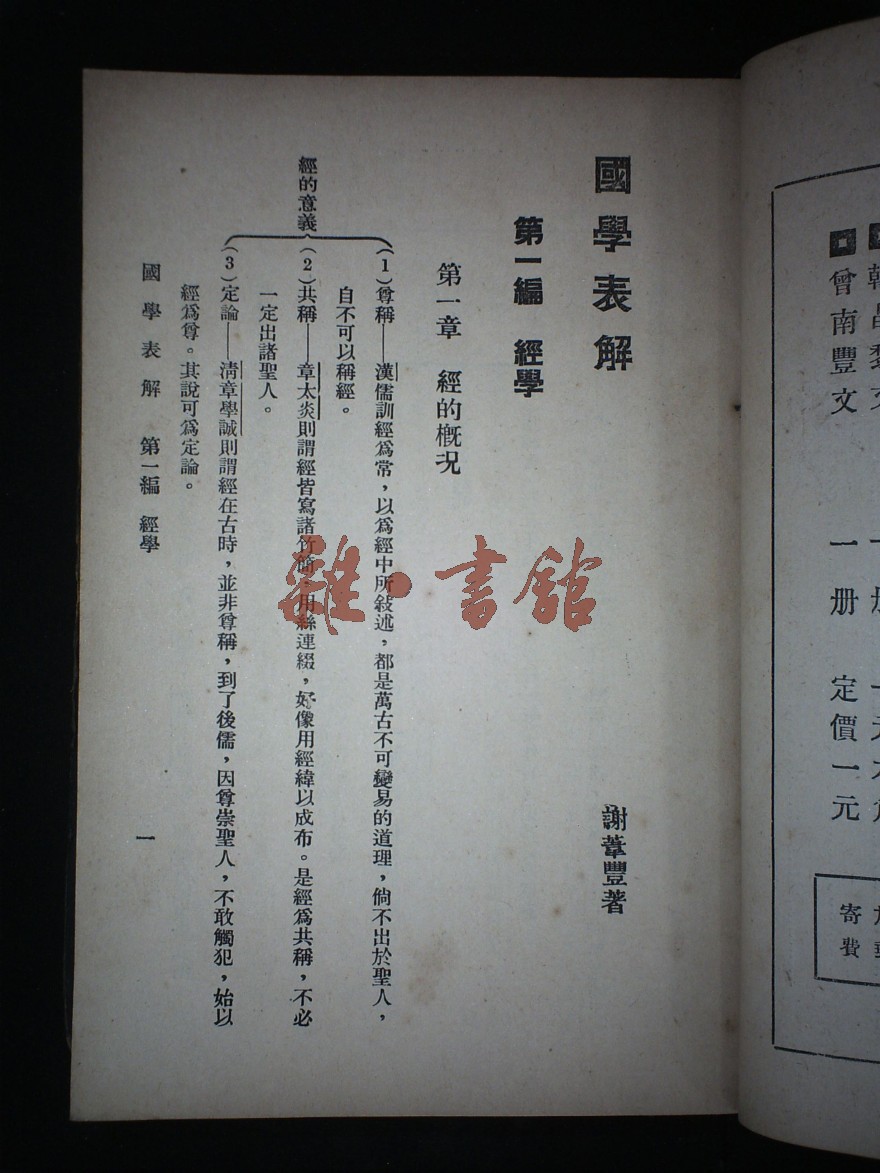 國學表解
謝葦豐著
第一編 經學
第一章 經的概況
經的意義
(1)尊稱——漢儒訓經爲常，以爲經中所敍述，都是萬古不可變易的道理，倘不出於聖人，
自不可以稱經。
(2)共稱——章太炎則謂經皆寫諸竹簡，用絲連綴，好像用經緯以成布。是經爲共稱，不必
一定出諸聖人。
(3)定論——清章學誠則謂經在古時，並非尊稱，到了後儒，因尊崇聖人，不敢觸犯，始以
經爲尊。其說可爲定論。
國學表解 第一編 經學
一
雜·書館
曾南豐文 一册 定價一元
寄費